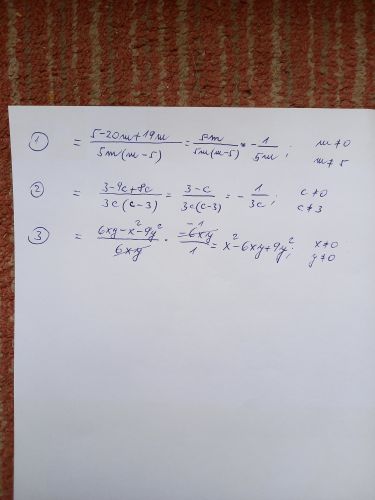 ① = 5-20m+19m / 5m(m-5) = 5m / 5m(m-5) = -1 / 5m; m≠0
m≠5
② = 3-9c+8c / 3c(c-3) = 3-c / 3c(c-3) = - 1 / 3c; c≠0
c≠3
③ = 6xy-x²-9y² / 6xy · -6xy / 1 = x²-6xy+9y²; x≠0
-1
y≠0